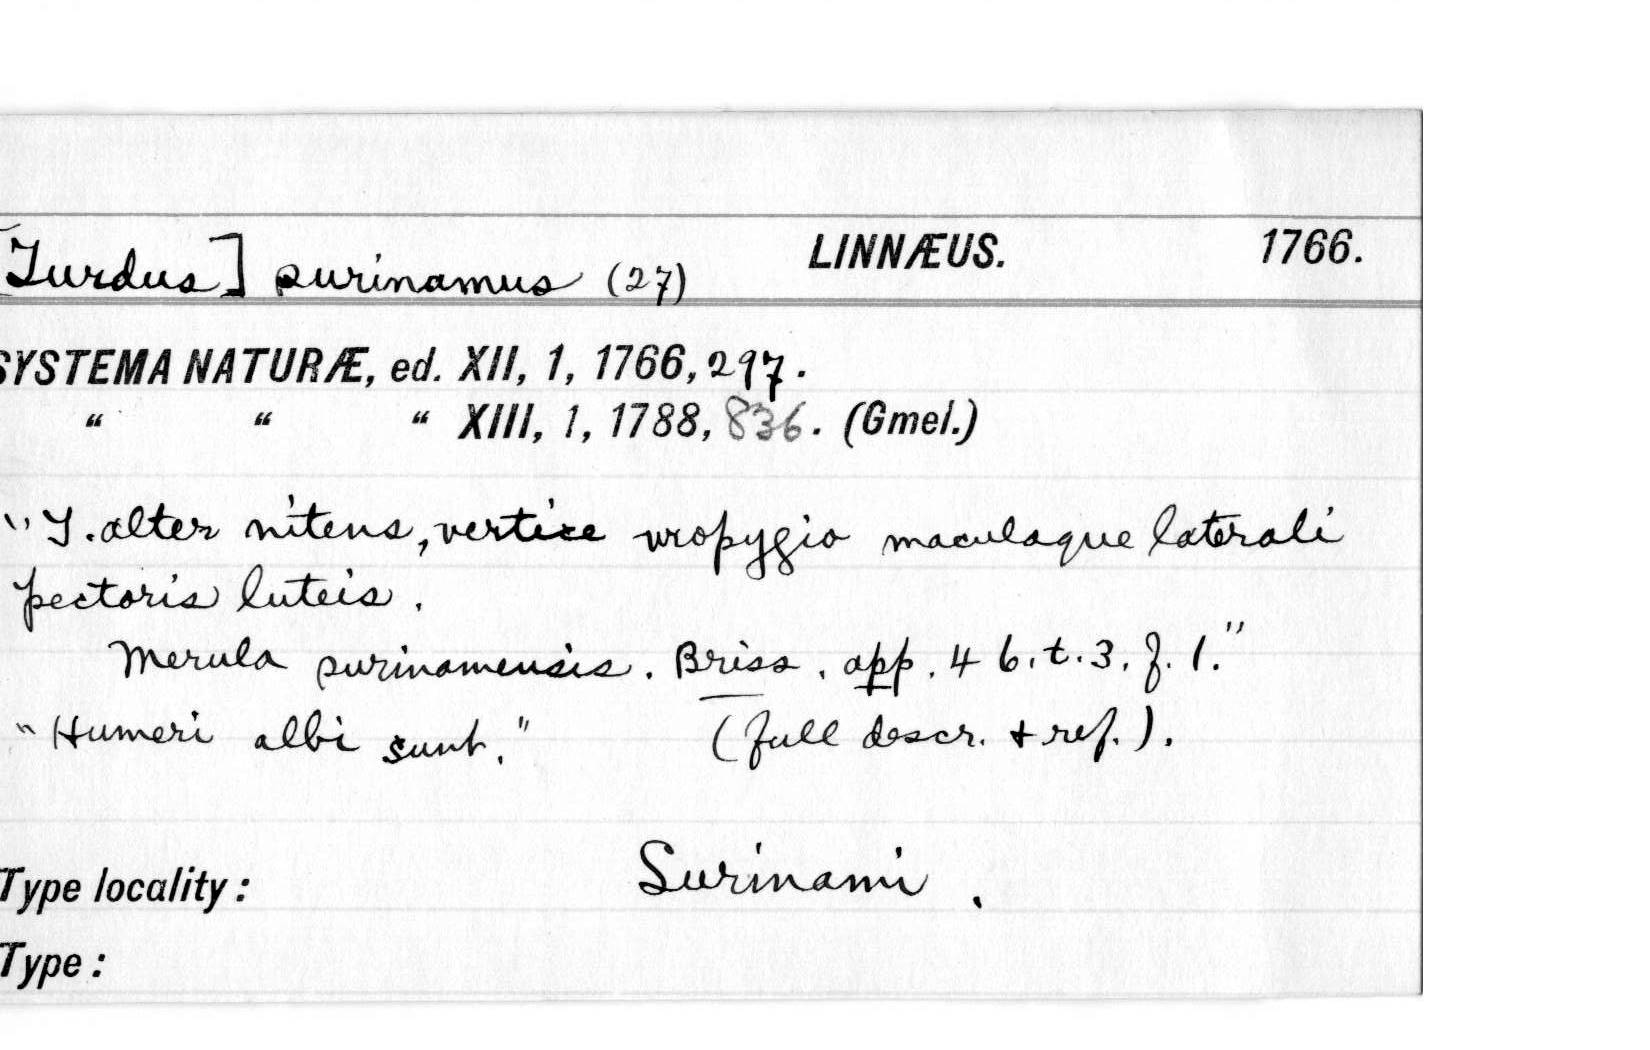 [Turdus] surinamus (27) LINNÆUS. 1766.
SYSTEMA NATURÆ, ed. XII, 1, 1766, 297.
“ “ “ XIII, 1, 1788, 836. (Gmel.)
"T. alter nitens, vertice uropygio maculaque laterali
pectoris luteis.
Merula surinamensis. Briss. app. 46. t. 3. f. 1."
"Humeri albi sunt." (full descr. + ref.).
Type locality: Surinami.
Type: